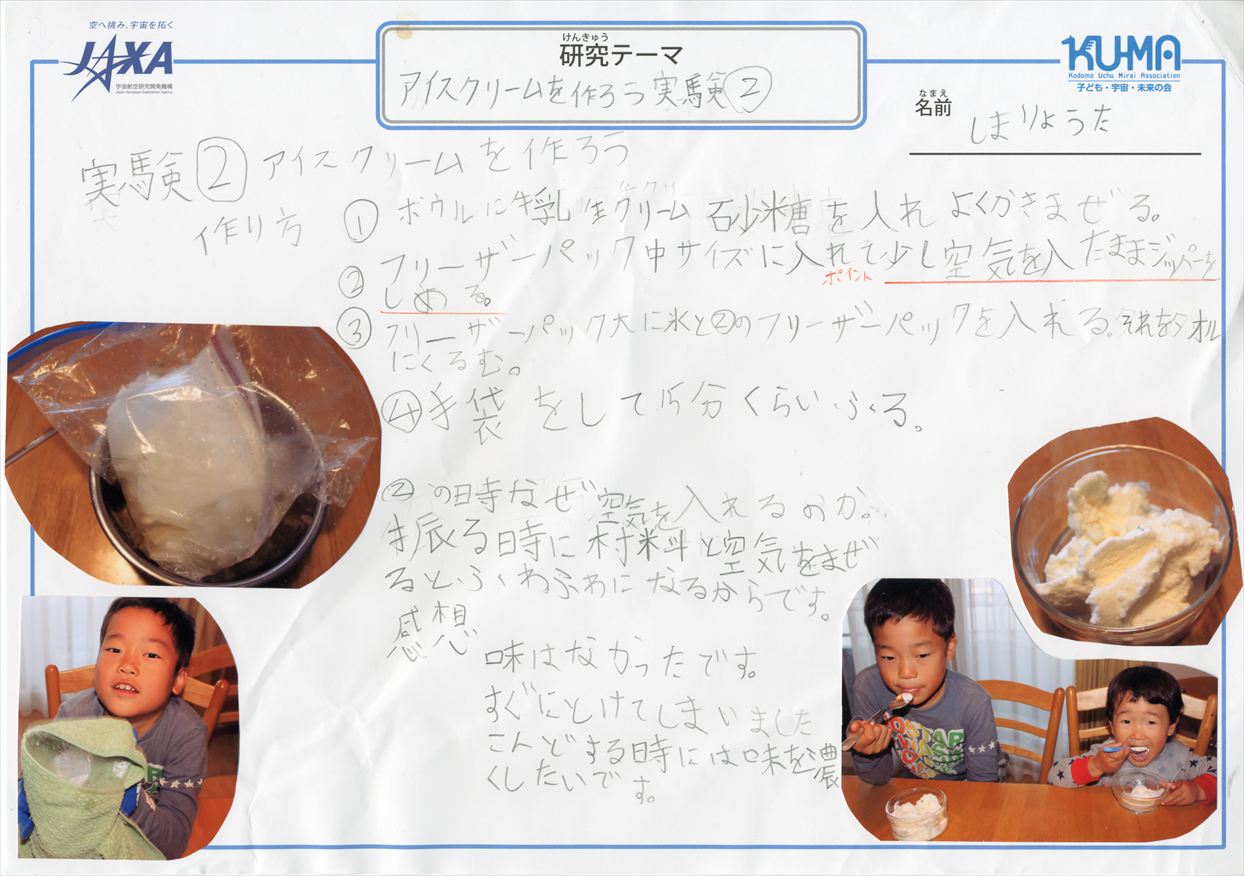 空へ挑み、宇宙を拓く
JAXA
宇宙航空研究開発機構
Japan Aerospace Exploration Agency
けんきゅう
研究テーマ
アイスクリームを作ろう実験②
KU-MA
Kodomo Uchu Mirai Association
子ども・宇宙・未来の会
なまえ
名前
しまりょうた
実験② アイスクリームを作ろう
作り方
① ボウルに牛乳生クリーム砂糖を入れよくかきまぜる。
② フリーザーパック中サイズに入れて少し空気を入たままジッパーを
ポイント
しめる。
③ フリーザーパック大に氷と②のフリーザーパックを入れる。それをタオル
にくるむ。
④手袋をして15分くらいふる。
②の時なぜ空気を入れるのか。
振る時に材料と空気をまぜ
るとふわふわになるからです。
感想
味はなかったです。
すぐにとけてしまいました
こんどする時には味を濃
くしたいです。